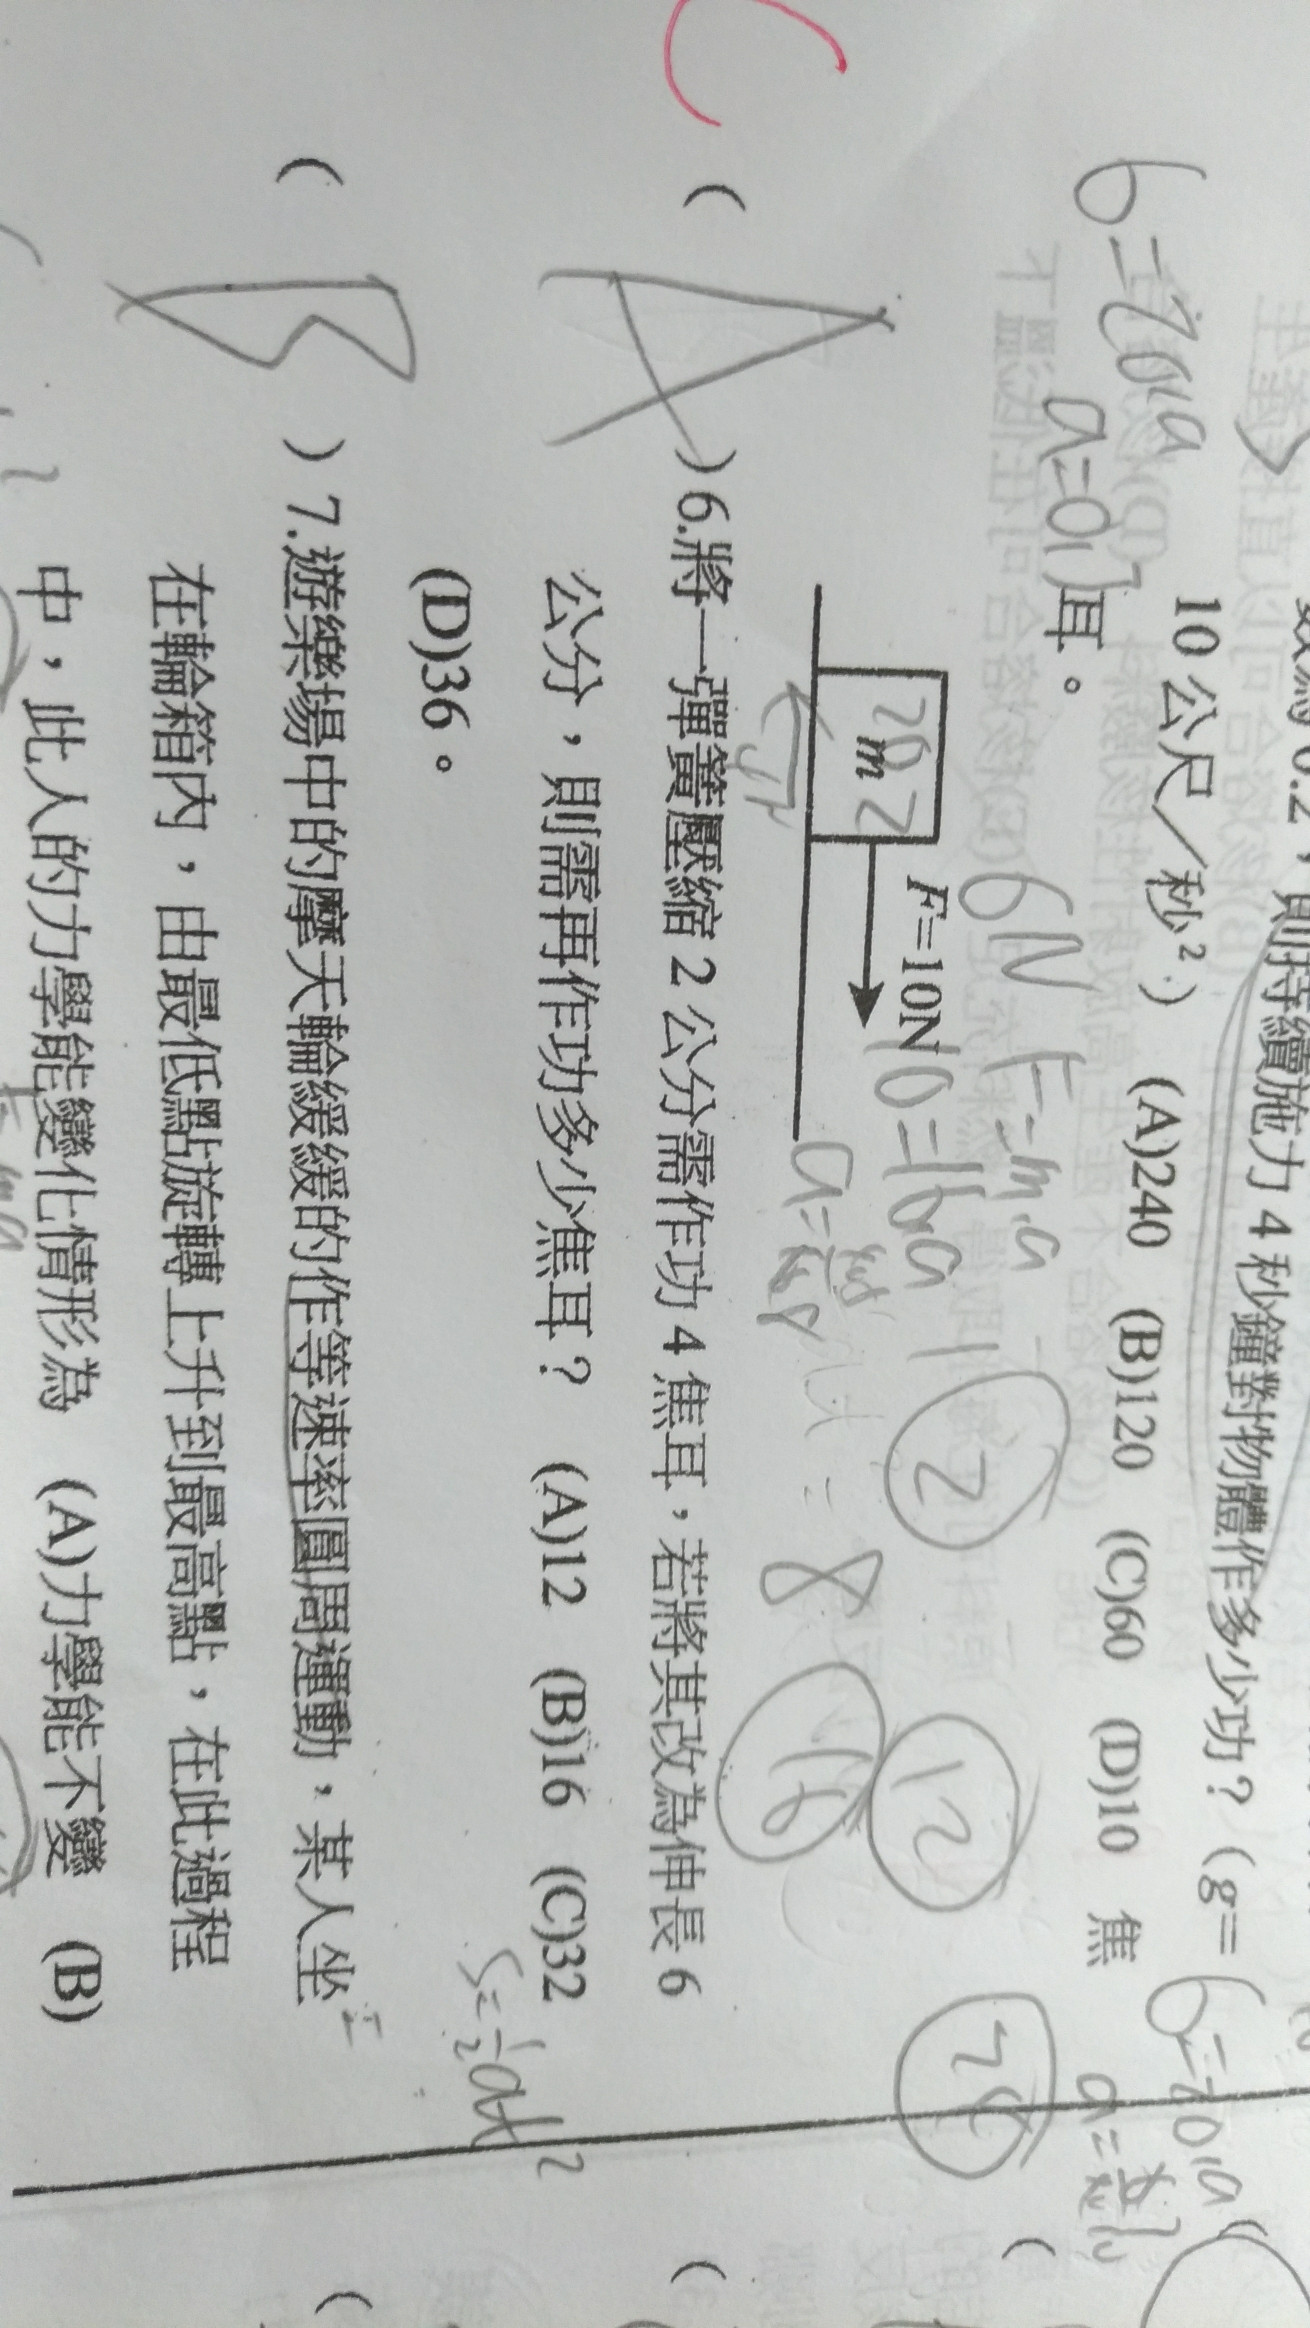 數為 0.2,則持續施力 4 秒鐘對物體作多少功?(g=
10 公尺/秒²) (A)240 (B)120 (C)60 (D)10 焦
耳。
6N
F=m.a
F=10N
m
2
10=
12
16
8
( A )6.將一彈簧壓縮 2 公分需作功 4 焦耳,若將其改為伸長 6
公分,則需再作功多少焦耳? (A)12 (B)16 (C)32
(D)36。
S=½at²
( B )7.遊樂場中的摩天輪緩緩的作等速率圓周運動,某人坐
在輪箱內,由最低點旋轉上升到最高點,在此過程
中,此人的力學能變化情形為 (A)力學能不變 (B)